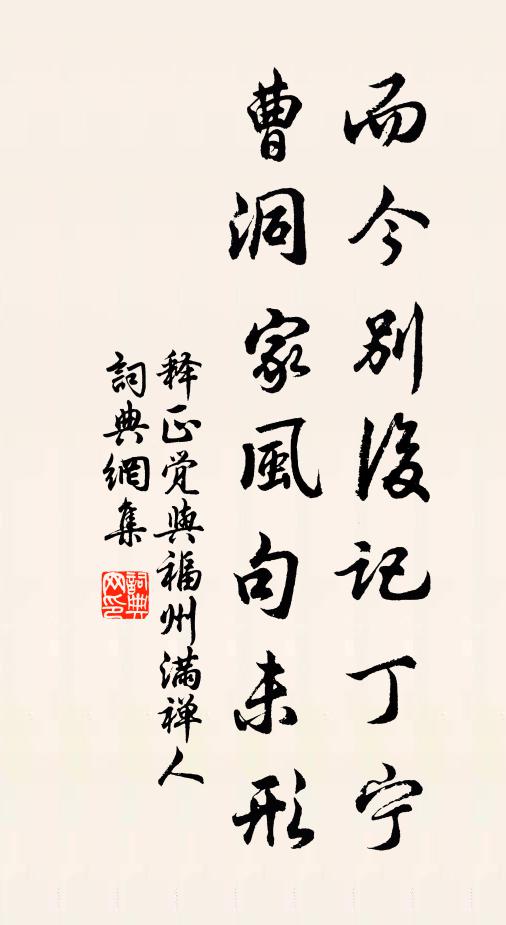 而今别後记丁宁
曹洞家風句未形
释正觉與福州满禅人
詞典網集
詞典网印